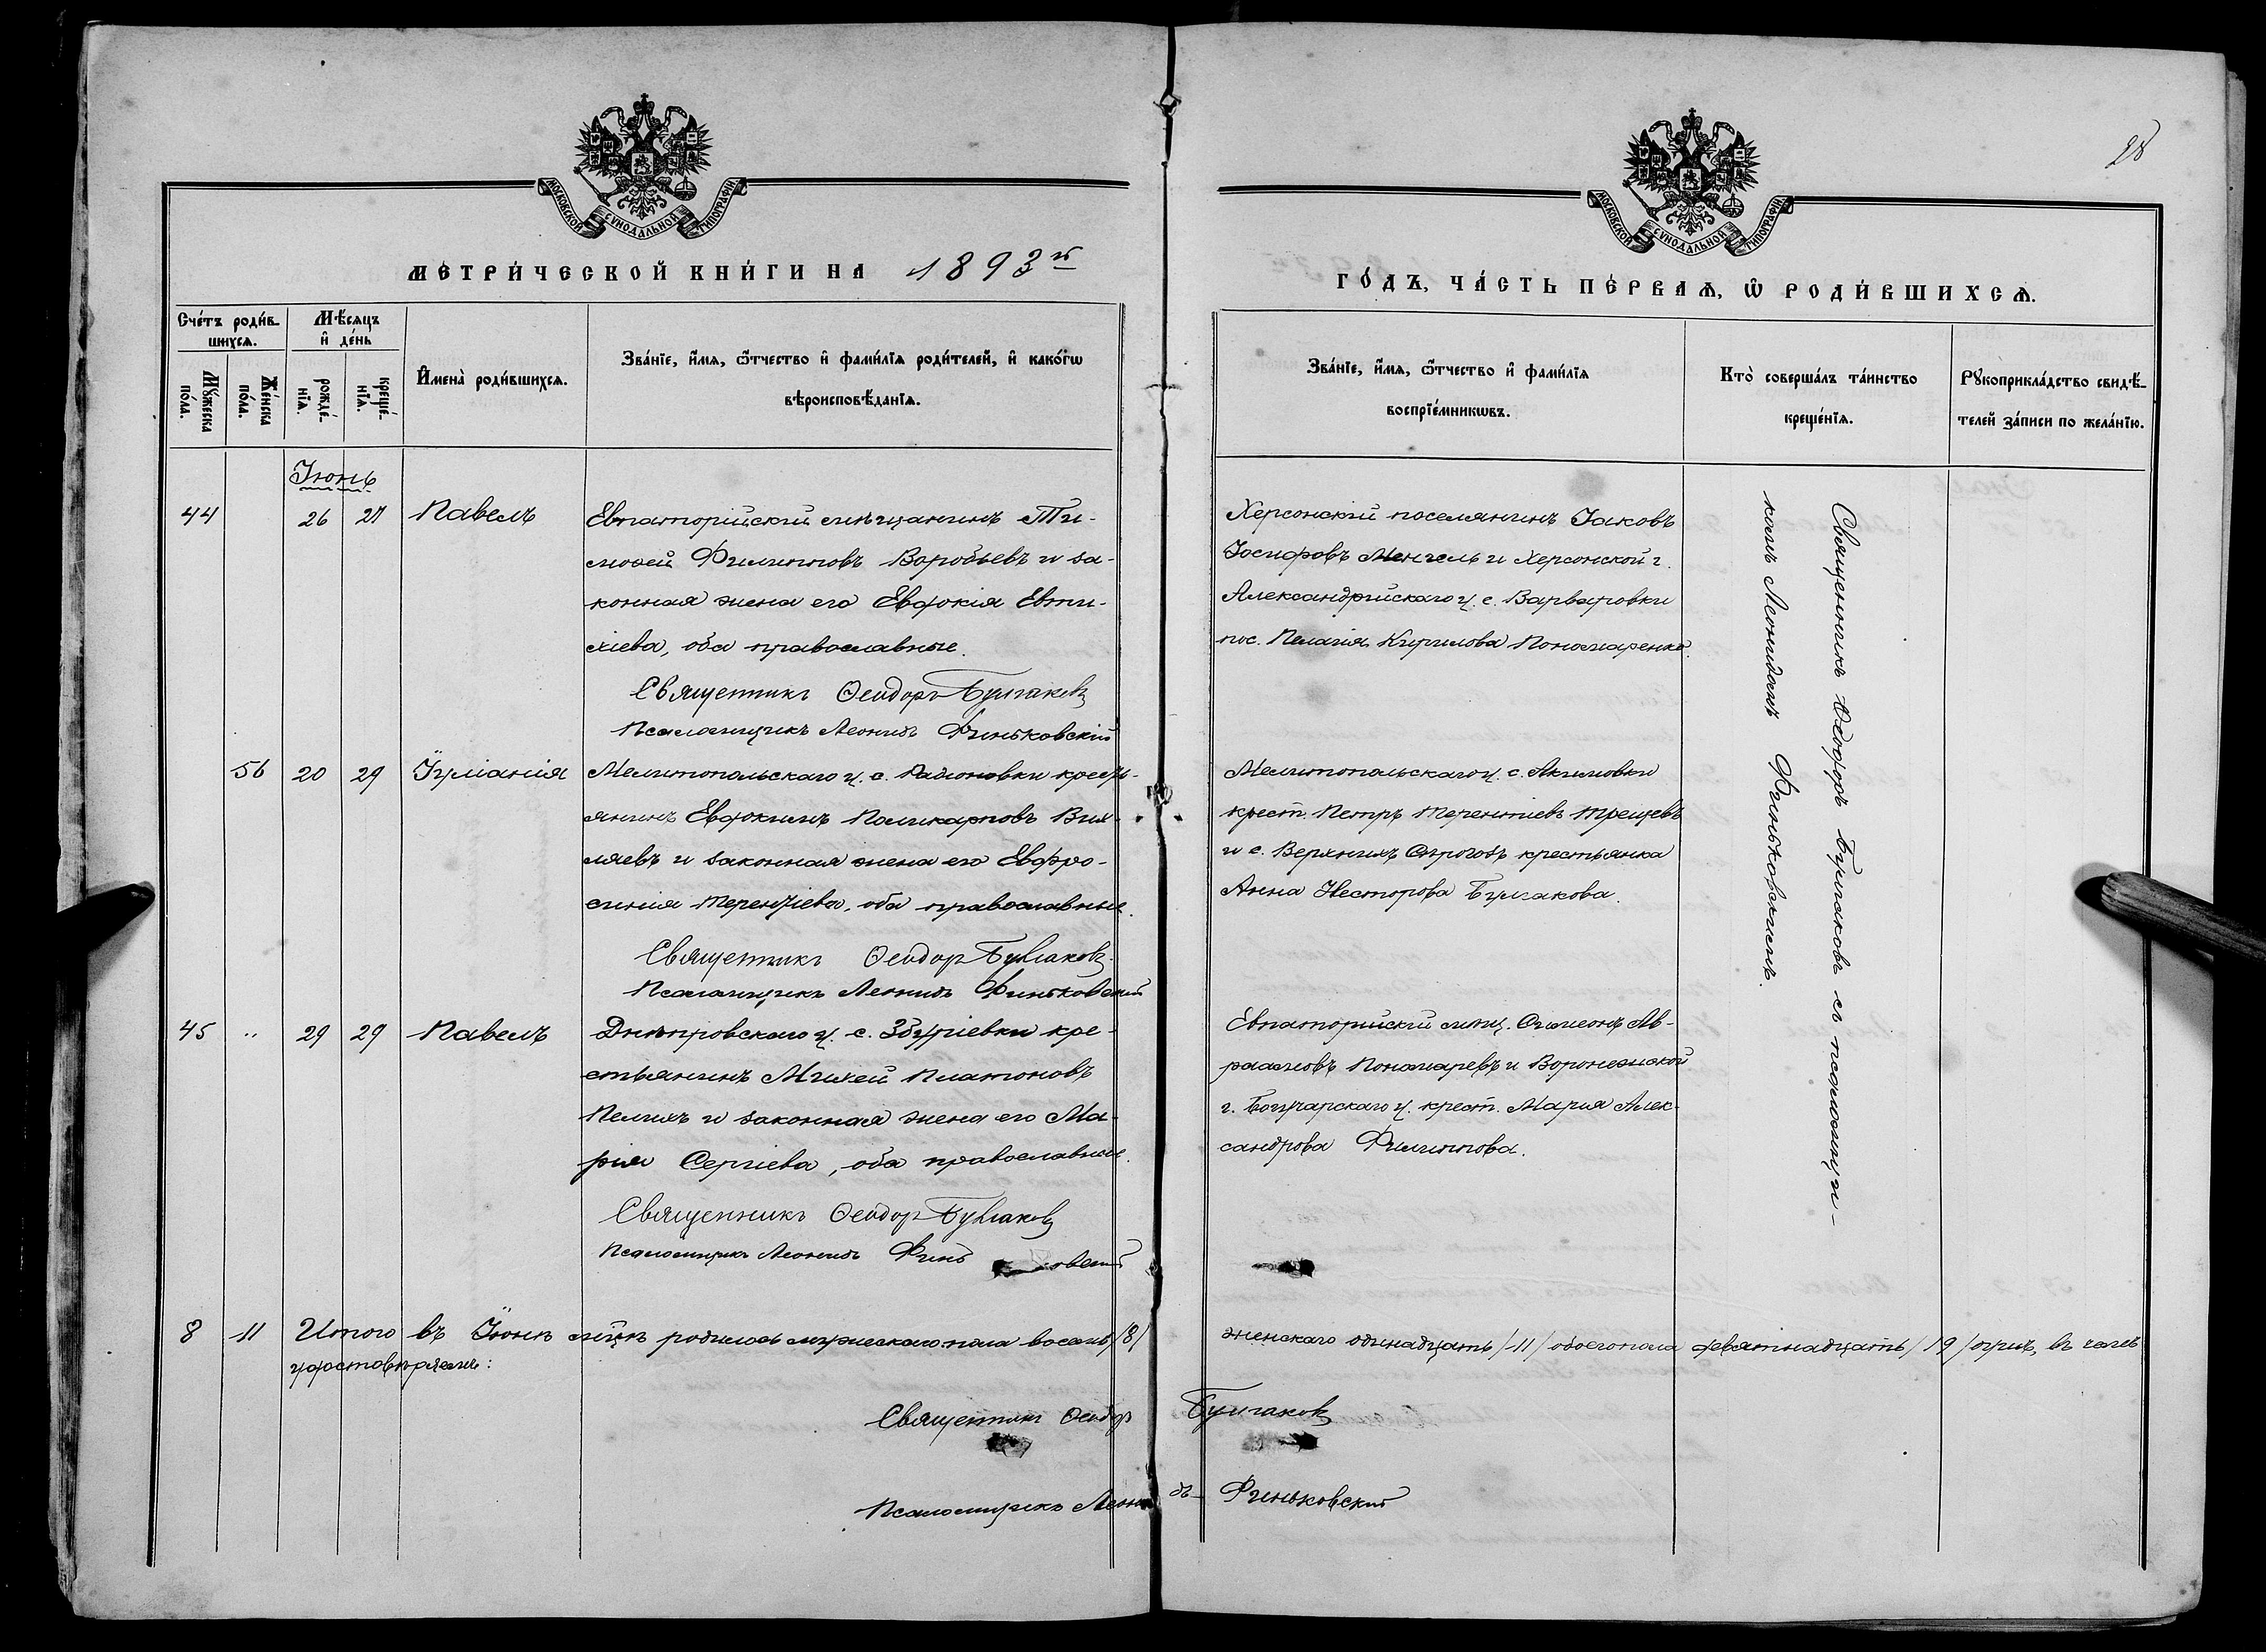 28
МОСКОВСКОЙ СУНОДАЛЬНОЙ ТИПОГРАФІИ
МОСКОВСКОЙ СУНОДАЛЬНОЙ ТИПОГРАФІИ
МЕТРИ́ЧЕСКОЙ КНИ́ГИ НА 1893й
ГО́ДЪ, ЧА́СТЬ ПЕ́РВАѦ, Ѡ҆ РОДИ́ВШИХСѦ.
Сче́тъ роди́в-
шихсѧ.
Мѣ́сѧцъ
и҆ де́нь
Мꙋ́жеска
по́ла.
Же́нска
по́ла.
рожде́-
нїѧ.
креще́-
нїѧ.
И҆мена̀ роди́вшихсѧ.
Зва́нїе, и҆́мѧ, ѻ҆́тчество и҆ фами́лїѧ роди́телей, и҆ како́гѡ
вѣроисповѣ́данїѧ.
Зва́нїе, и҆́мѧ, ѻ҆́тчество и҆ фами́лїѧ
воспрїе́мникѡвъ.
Кто̀ соверша́лъ та́инство
креще́нїѧ.
Рꙋкоприкла́дство свидѣ́-
телей за́писи по жела́нїю.
Іюнь
44 26 27 Павелъ
Евпаторійскій мѣщанинъ Ти-
моѳей Филипповъ Воробьевъ и за-
конная жена его Евдокія Евти-
хіева, оба православные.
Священникъ Ѳеодоръ Булгаковъ
Псаломщикъ Леонидъ Финьковскій
Херсонскій поселянинъ Іаковъ
Іосифовъ Менгель и Херсонской г.
Александрійскаго у. с. Варваровки
пос. Пелагія Кирилова Пономаренко.
Священникъ Ѳеодоръ Булгаковъ съ псаломщи-
комъ Леонидомъ Финьковскимъ.
56 20 29 Іуліанія
Мелитопольскаго у. с. Радионовки кресть-
янинъ Евдокимъ Поликарповъ Вих-
ляевъ и законная жена его Евфро-
синія Терентіева, оба православные.
Священникъ Ѳеодоръ Булгаковъ
Псаломщикъ Леонидъ Финьковскій
Мелитопольскаго у. с. Акимовки
крест. Петръ Терентіевъ Трещевъ
и с. Верхнихъ Сѣрогозъ крестьянка
Анна Несторова Булгакова.
45 " 29 29 Павелъ
Днѣпровскаго у. с. Збуріевки кре-
стьянинъ Михей Платоновъ
Пелихъ и законная жена его Ма-
рія Сергіева, оба православные.
Священникъ Ѳеодоръ Булгаковъ
Псаломщикъ Леонидъ Финь овскій
Евпаторійскій мѣщ. Симеонъ Ав-
раамовъ Пономаревъ и Воронежской
г. Богучарскаго у. крест. Мария Алек-
сандрова Филиппова.
8 11 Итого въ Іюнѣ м-цѣ родилось мужескаго пола восемь /8/ женскаго одинадцать /11/ обоего пола девятнадцать /19/ душъ, въ чемъ
удостовѣряемъ:
Священникъ Ѳеодоръ Булгаковъ
Псаломщикъ Леонидъ Финьковскій